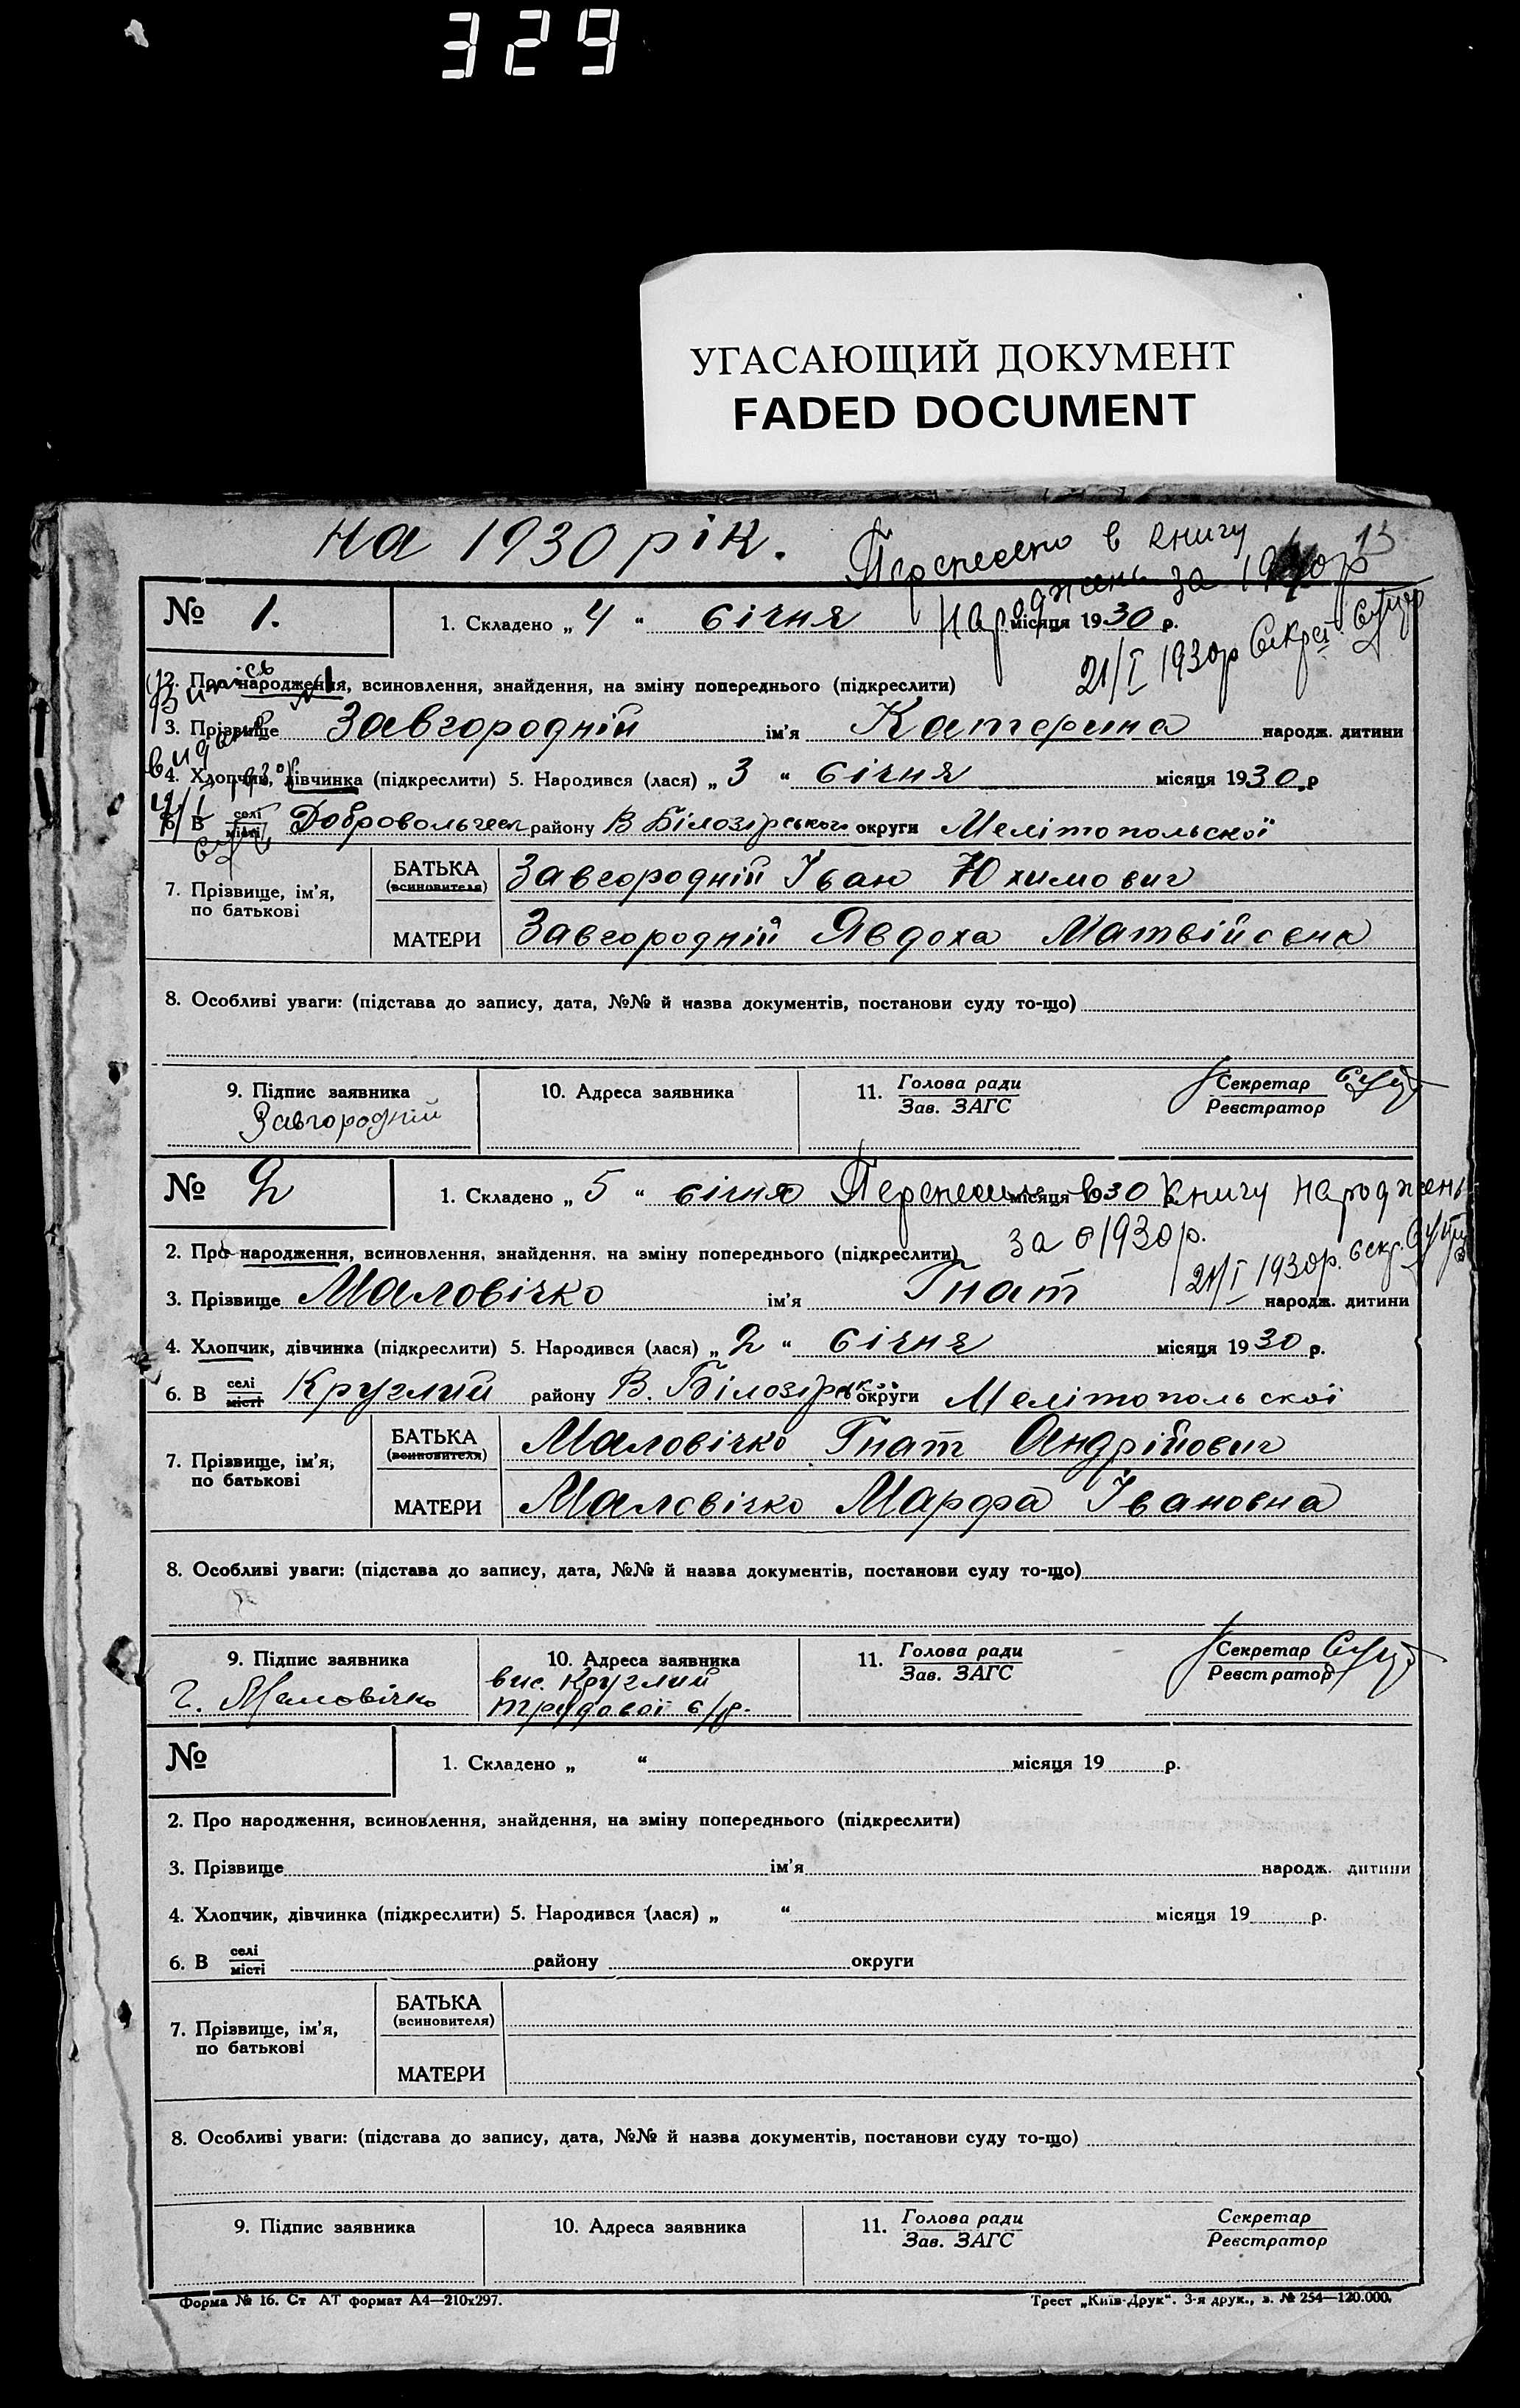 329
УГАСАЮЩИЙ ДОКУМЕНТ
FADED DOCUMENT
на 1930 рік.
Перенесено в книгу
народжень за 1930р
21/I 1930р Секрет.
13
№ 1.
1. Складено „ 4 “ січня місяця 1930 р.
2. Про народження, всиновлення, знайдення, на зміну попереднього (підкреслити)
3. Прізвище Завгородній ім'я Катерина народж. дитини
4. Хлопчик, дівчинка (підкреслити) 5. Народився (лася) „ 3 “ січня місяця 1930 р
6. В селі/місті району В Білозірського округи Мелітопольскої
7. Прізвище, ім'я, по батькові
БАТЬКА (всиновителя) Завгородній Іван Юхимович
МАТЕРИ Завгородній Явдоха Матвійєвна
8. Особливі уваги: (підстава до запису, дата, №№ й назва документів, постанови суду то-що)
9. Підпис заявника
Завгородній
10. Адреса заявника
11. Голова ради
Зав. ЗАГС
Секретар
Реєстратор
№ 2
1. Складено „ 5 “ січня місяця 1930 р.
Перенесено в книгу народжень
за 1930р.
21/I 1930р. секр.
2. Про народження, всиновлення, знайдення, на зміну попереднього (підкреслити)
3. Прізвище Маловічко ім'я Гнат народж. дитини
4. Хлопчик, дівчинка (підкреслити) 5. Народився (лася) „ 2 “ січня місяця 1930 р.
6. В селі/місті Круглий району В. Білозірської округи Мелітопольскої
7. Прізвище, ім'я, по батькові
БАТЬКА (всиновителя) Маловічко Гнат Андрійович
МАТЕРИ Маловічко Марфа Івановна
8. Особливі уваги: (підстава до запису, дата, №№ й назва документів, постанови суду то-що)
9. Підпис заявника
Г. Маловічко
10. Адреса заявника
вис. Круглий
трудової с/р.
11. Голова ради
Зав. ЗАГС
Секретар
Реєстратор
№
1. Складено „ “ місяця 19 р.
2. Про народження, всиновлення, знайдення, на зміну попереднього (підкреслити)
3. Прізвище ім'я народж. дитини
4. Хлопчик, дівчинка (підкреслити) 5. Народився (лася) „ “ місяця 19 р.
6. В селі/місті району округи
7. Прізвище, ім'я, по батькові
БАТЬКА (всиновителя)
МАТЕРИ
8. Особливі уваги: (підстава до запису, дата, №№ й назва документів, постанови суду то-що)
9. Підпис заявника
10. Адреса заявника
11. Голова ради
Зав. ЗАГС
Секретар
Реєстратор
Форма № 16. Ст АТ формат А4—210х297.
Трест „Київ-Друк“. 3-я друк., з. № 254—120.000.